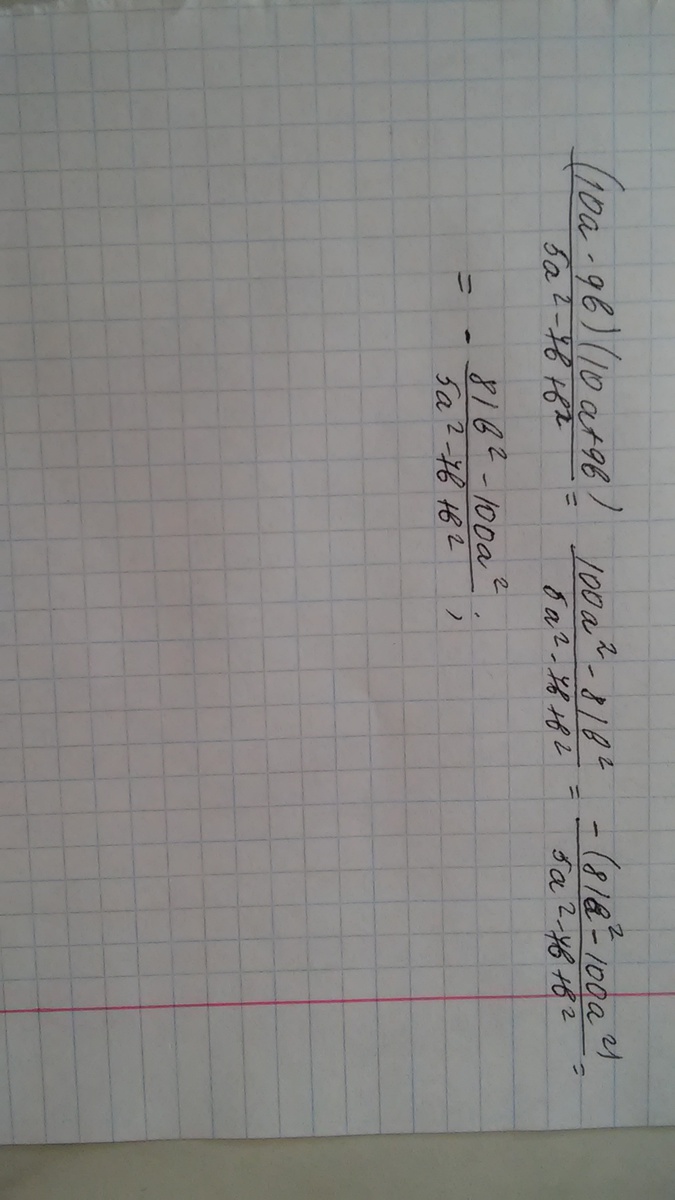 (10a - 9в)(10a+9в) / 5a² - 7в + в² = 100a² - 81в² / 5a² - 7в + в² = -(81в² - 100a²) / 5a² - 7в + в² =
= - 81в² - 100a² / 5a² - 7в + в² ;